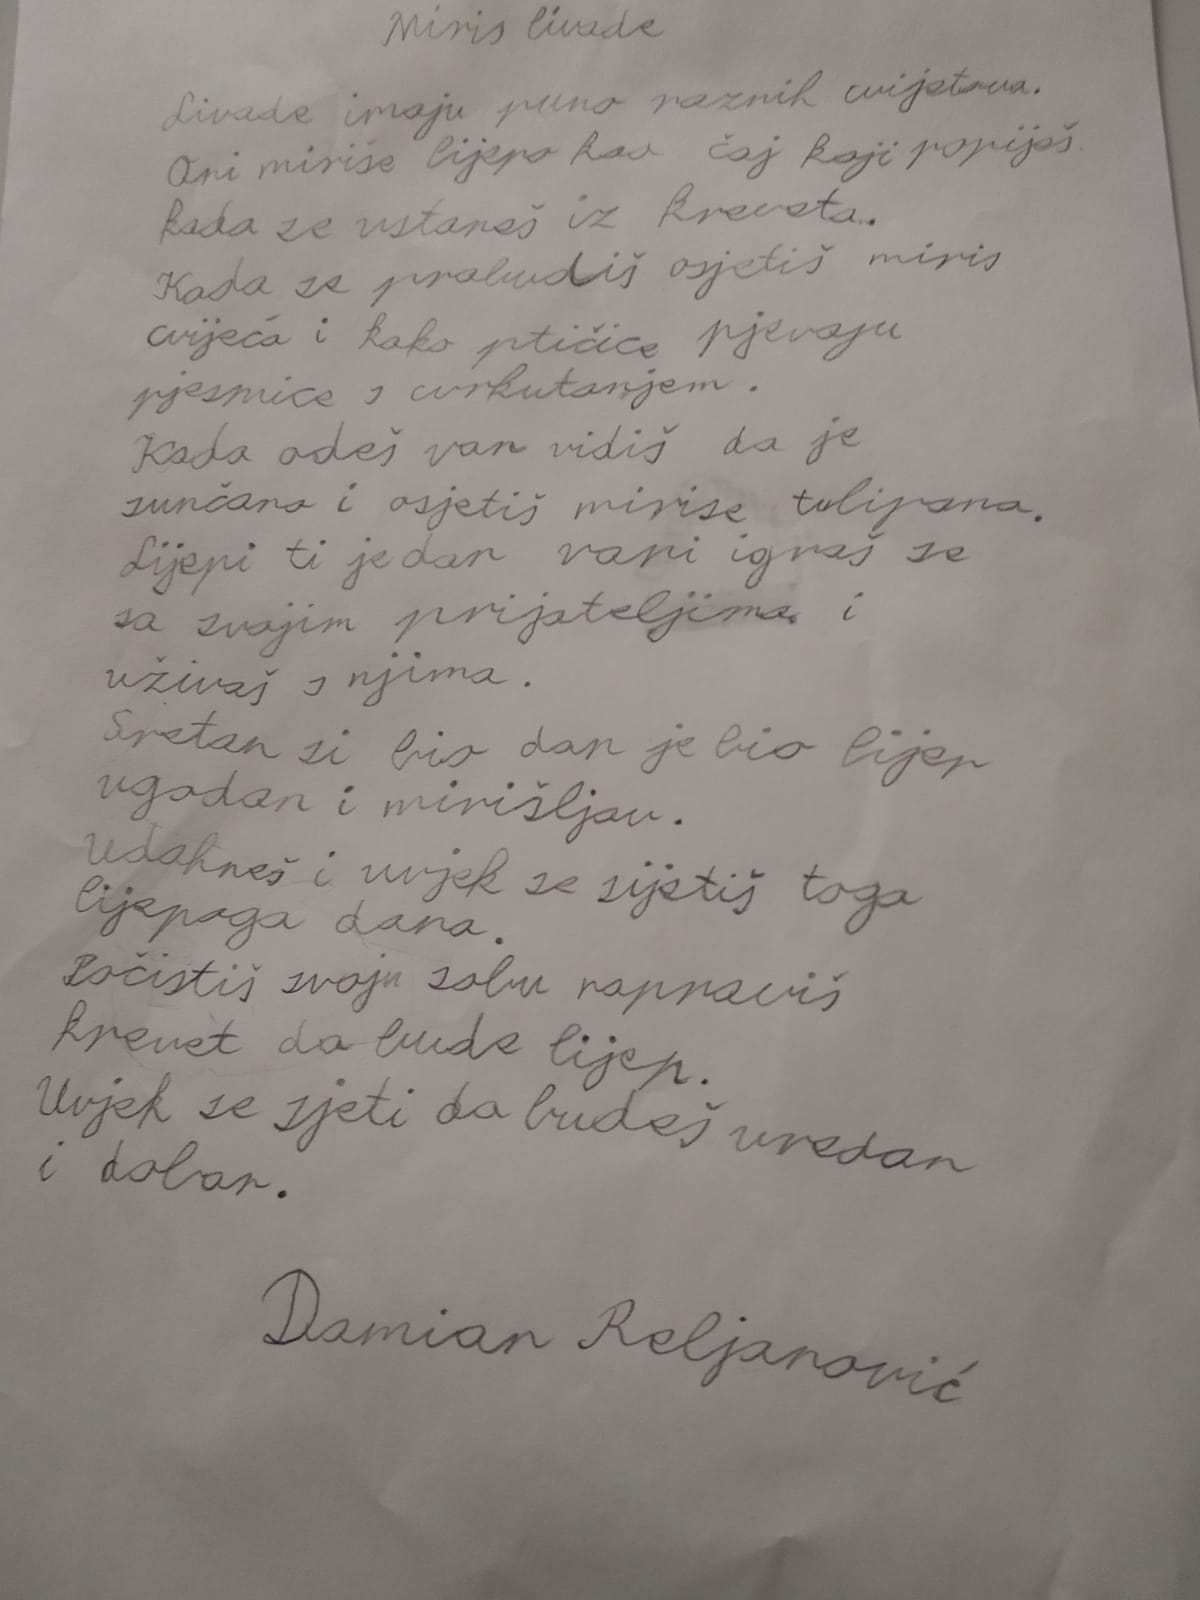 Miris livade
Livade imaju puno raznih cvijetova.
Oni miriše lijepo kao čaj koji popiješ.
kada se ustaneš iz kreveta.
Kada se probudiš osjetiš miris
cvijeća i kako ptičice pjevaju
pjesmice s cvrkutanjem.
Kada odeš van vidiš da je
sunčano i osjetiš mirise tulipana.
Lijepi ti je dan vani igraš se
sa svojim prijateljima i
uživaš s njima.
Sretan si bio dan je bio lijep
ugodan i mirišljav.
Udahneš i uvjek se sijetiš toga
lijepoga dana.
Počistiš svoju sobu napraviš
krevet da bude lijep.
Uvjek se sjeti da budeš uredan
i dobar.
Damian Reljanović